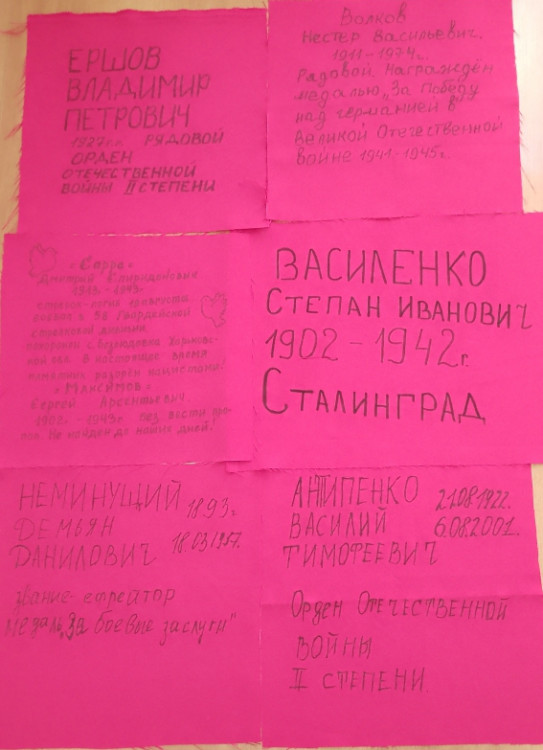 ЕРШОВ
ВЛАДИМИР
ПЕТРОВИЧ
1927г.р. РЯДОВОЙ
ОРДЕН
ОТЕЧЕСТВЕННОЙ
ВОЙНЫ II СТЕПЕНИ
Волков
Нестер Васильевич.
1911-1974г.
Рядовой. Награждён
медалью „За Победу
над германией в
Великой Отечественной
войне 1941-1945г.
Дмитрий Спиридонович
1913-1943г.
стрелок
в 58 Гвардейской
стрелковой дивизии.
похоронен с. Харьковс-
кой обл. В настоящее время
памятник разорён нацистами!
"Максимов"
Сергей Арсентьевич
1902г.-1943г. без вести про-
пал. Не найден до наших дней!
ВАСИЛЕНКО
СТЕПАН ИВАНОВИЧ
1902-1942г.
СТАЛИНГРАД
НЕМИНУЩИЙ 1893г.
ДЕМЬЯН
ДАНИЛОВИЧ 18.03.1957.
звание-ефрейтор
медаль „За боевые заслуги"
АНТИПЕНКО 21.08.1922.
ВАСИЛИЙ 6.08.2001.
ТИМОФЕЕВИЧ
Орден Отечественной
ВОЙНЫ
II СТЕПЕНИ.